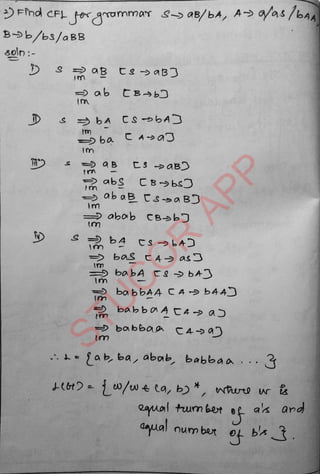 2) Find CFL for grammar S→ aB/bA, A→ a/as/bAA,
B→b/bS/aBB
soln :-
i) S ⇒ aB [S→aB]
lm
⇒ ab [B→b]
lm
ii) S ⇒ bA [S→bA]
lm
⇒ ba [A→a]
lm
iii) S ⇒ aB [S→aB]
lm
⇒ abS [B→bS]
lm
⇒ abaB [S→aB]
lm
⇒ abab [B→b]
lm
iv) S ⇒ bA [S→bA]
lm
⇒ baS [A→aS]
lm
⇒ babA [S→bA]
lm
⇒ babbAA [A→bAA]
lm
⇒ babbaA [A→a]
lm
⇒ babbaa [A→a]
lm
∴ L = {ab, ba, abab, babbaa ... }
L(G) = { w/w ∈ (a, b)*, where w is
equal number of a's and
equal number of b's }.
STUCOR APP